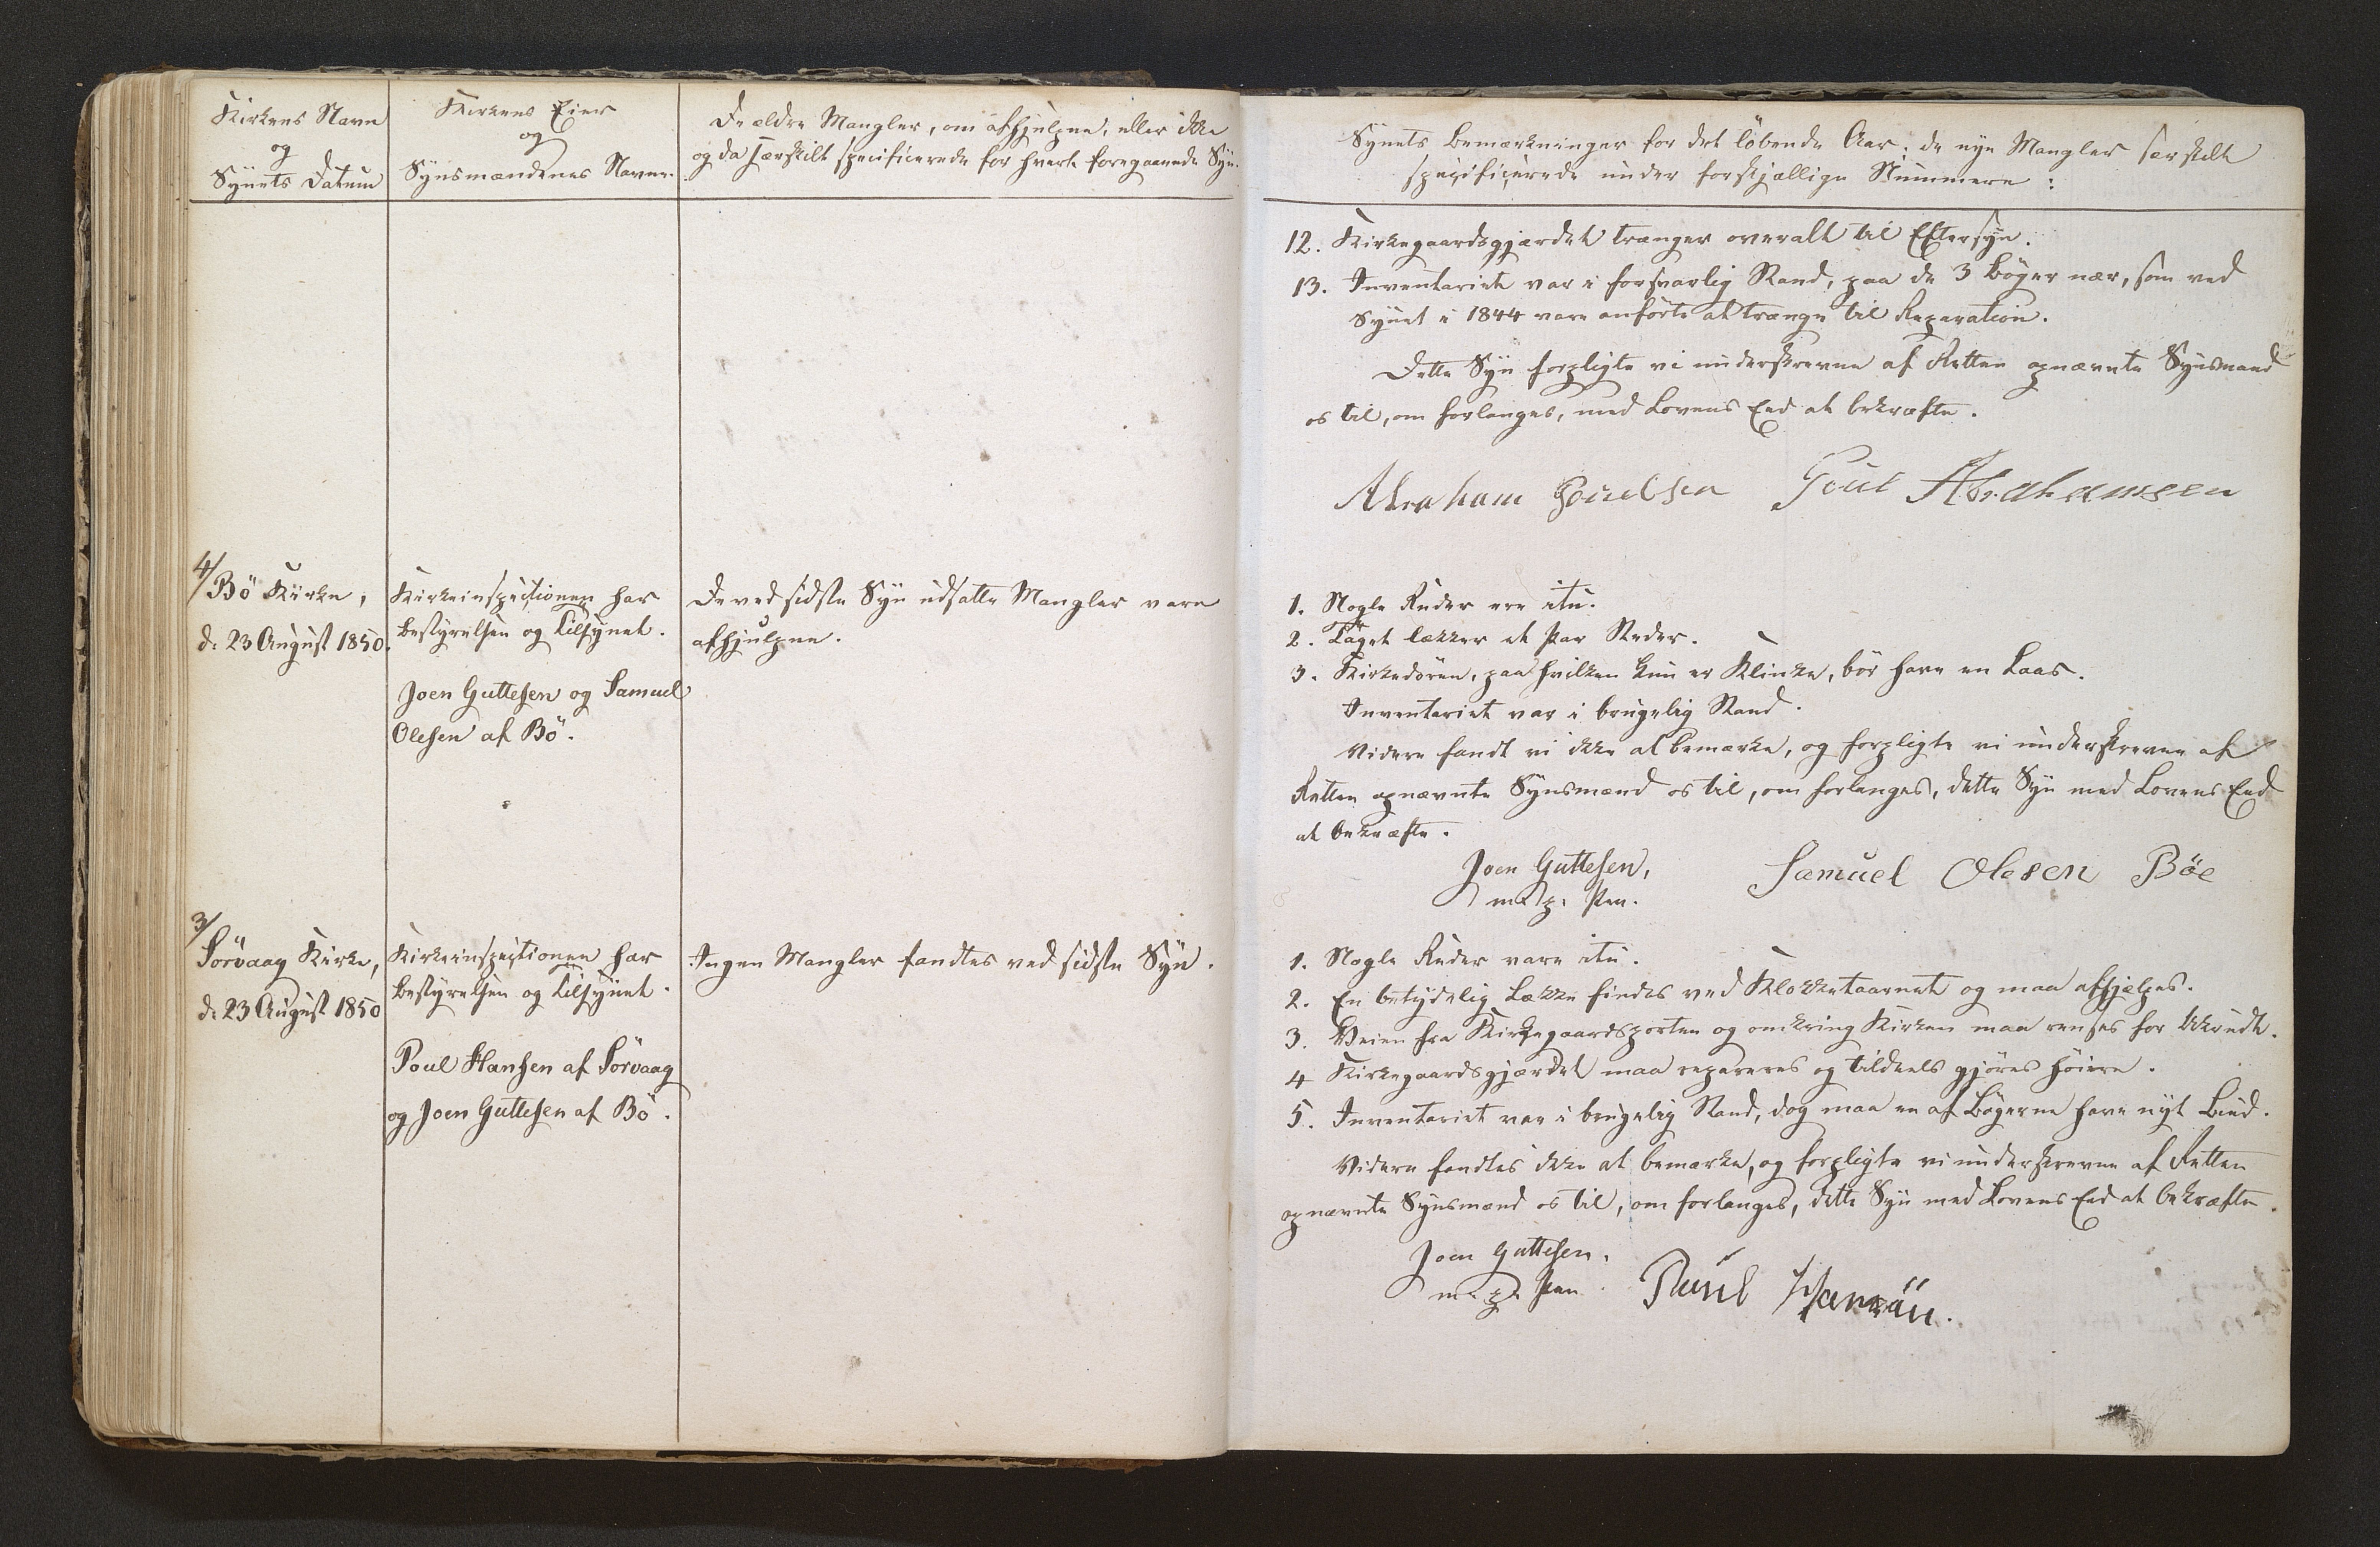 Kirkens Navn
og
Synets Datum
Kirkens Eier
og
Synsmændenes Navne.
De ældre Mangler, om afhjulpne, eller ikke
og da særskilt specificerede for hvert foregaaende Syn.
4/
Bö Kirke,
d. 23 August 1850.
Kirkeinspectionen har
Bestyrelsen og Tilsynet.
Joen Guttesen og Samuel
Olesen af Bö.
De ved sidste Syn udsatte Mangler vare
afhjulpne.
3/
Sörvaag Kirke,
d. 23 August 1850
Kirkeinspectionen har
Bestyrelsen og Tilsynet.
Poul Hansen af Sörvaag
og Joen Guttesen af Bö.
Ingen Mangler fandtes ved sidste Syn.
Synets Bemærkninger for det löbende Aar; de nye Mangler særskilt
specificerede under forskjællige Nummere:
12. Kirkegaardsgjærdet trænger overalt til Eftersyn.
13. Inventariet var i forsvarlig Stand, paa de 3 Böger nær, som ved
Synet i 1844 vare anförte at trænge til Reparation.
Dette Syn forpligte vi underskrevne af Retten opnævnte Synsmænd
os til, om forlanges, med Lovens Eed at bekræfte.
Abraham Poulsen Poul Abrahamsen
1. Nogle Ruder ere itu.
2. Taget lækker et Par Steder.
3. Kirkedören, paa hvilken kun er Klinke, bör have en Laas.
Inventariet var i brugelig Stand.
Videre fandt vi ikke at bemærke, og forpligte vi underskrevne af
Retten opnævnte Synsmænd os til, om forlanges, dette Syn med Lovens Eed
at bekræfte.
Joen Guttesen, Samuel Olesen Böe
m. p. Pen.
1. Nogle Ruder vare itu.
2. En betydelig Lække findes ved Klokketaarnet og maa afhjælpes.
3. Veien fra Kirkegaardsporten og omkring Kirken maa renses for Ukrudt.
4 Kirkegaardsgjærdet maa repareres og tildeels gjöres höiere.
5. Inventariet var i brugelig Stand, dog maa en af Bögerne have nyt Bind.
Videre fandtes ikke at bemærke, og forpligte vi underskrevne af Retten
opnævnte Synsmænd os til, om forlanges, dette Syn med Lovens Eed at bekræfte.
Joen Guttesen.
m. p. Pen. Poul Hansen.